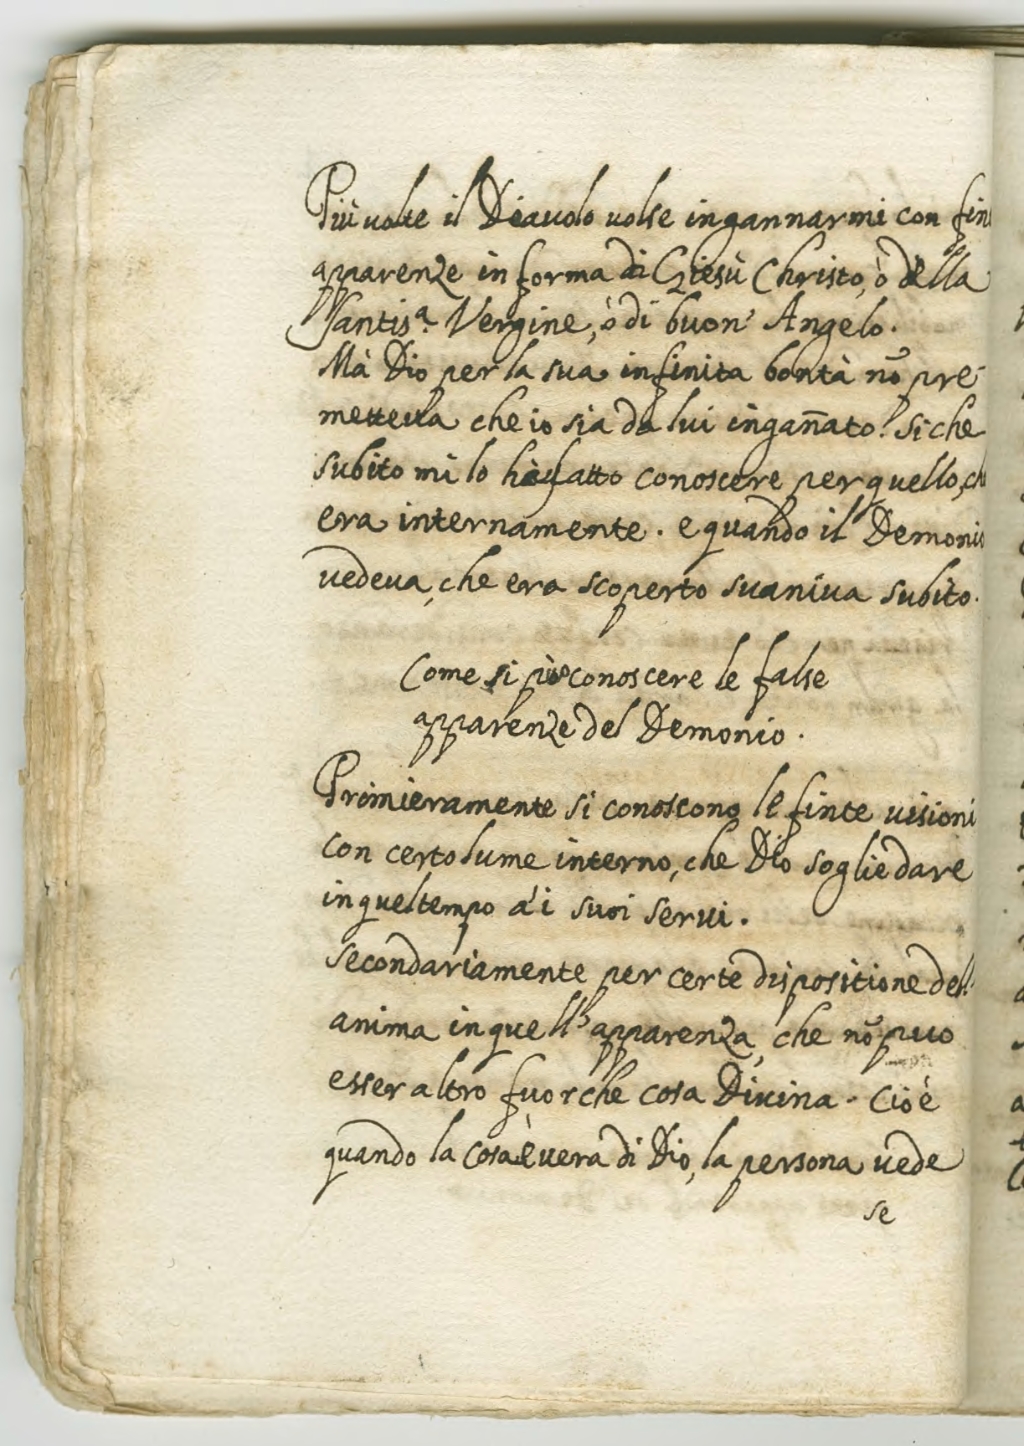 Più volte il Diavolo volse ingannarmi con fint
apparenze in forma di Giesù Christo, ò della
Santis.ª Vergine, ò di buon' Angelo.
Mà Dio per la sua infinita bontà nō pre-
metteva che io sia da lui ingan̄ato. Si che
subito mi lo hà fatto conoscere per quello, ch
era internamente. e quando il Demonio
vedeva, che era scoperto svaniva subito.
Come si può conoscere le false
apparenze del Demonio.
Primieramente si conoscono le finte visioni
con certo lume interno, che Dio soglie dare
in quel tempo à i suoi servi.
Secondariamente per certe dispositione dell'
anima in quell' apparenza, che nō puo
esser altro fuor che cosa Divina. Cio è
quando la cosa è vera di Dio, la persona vede
se